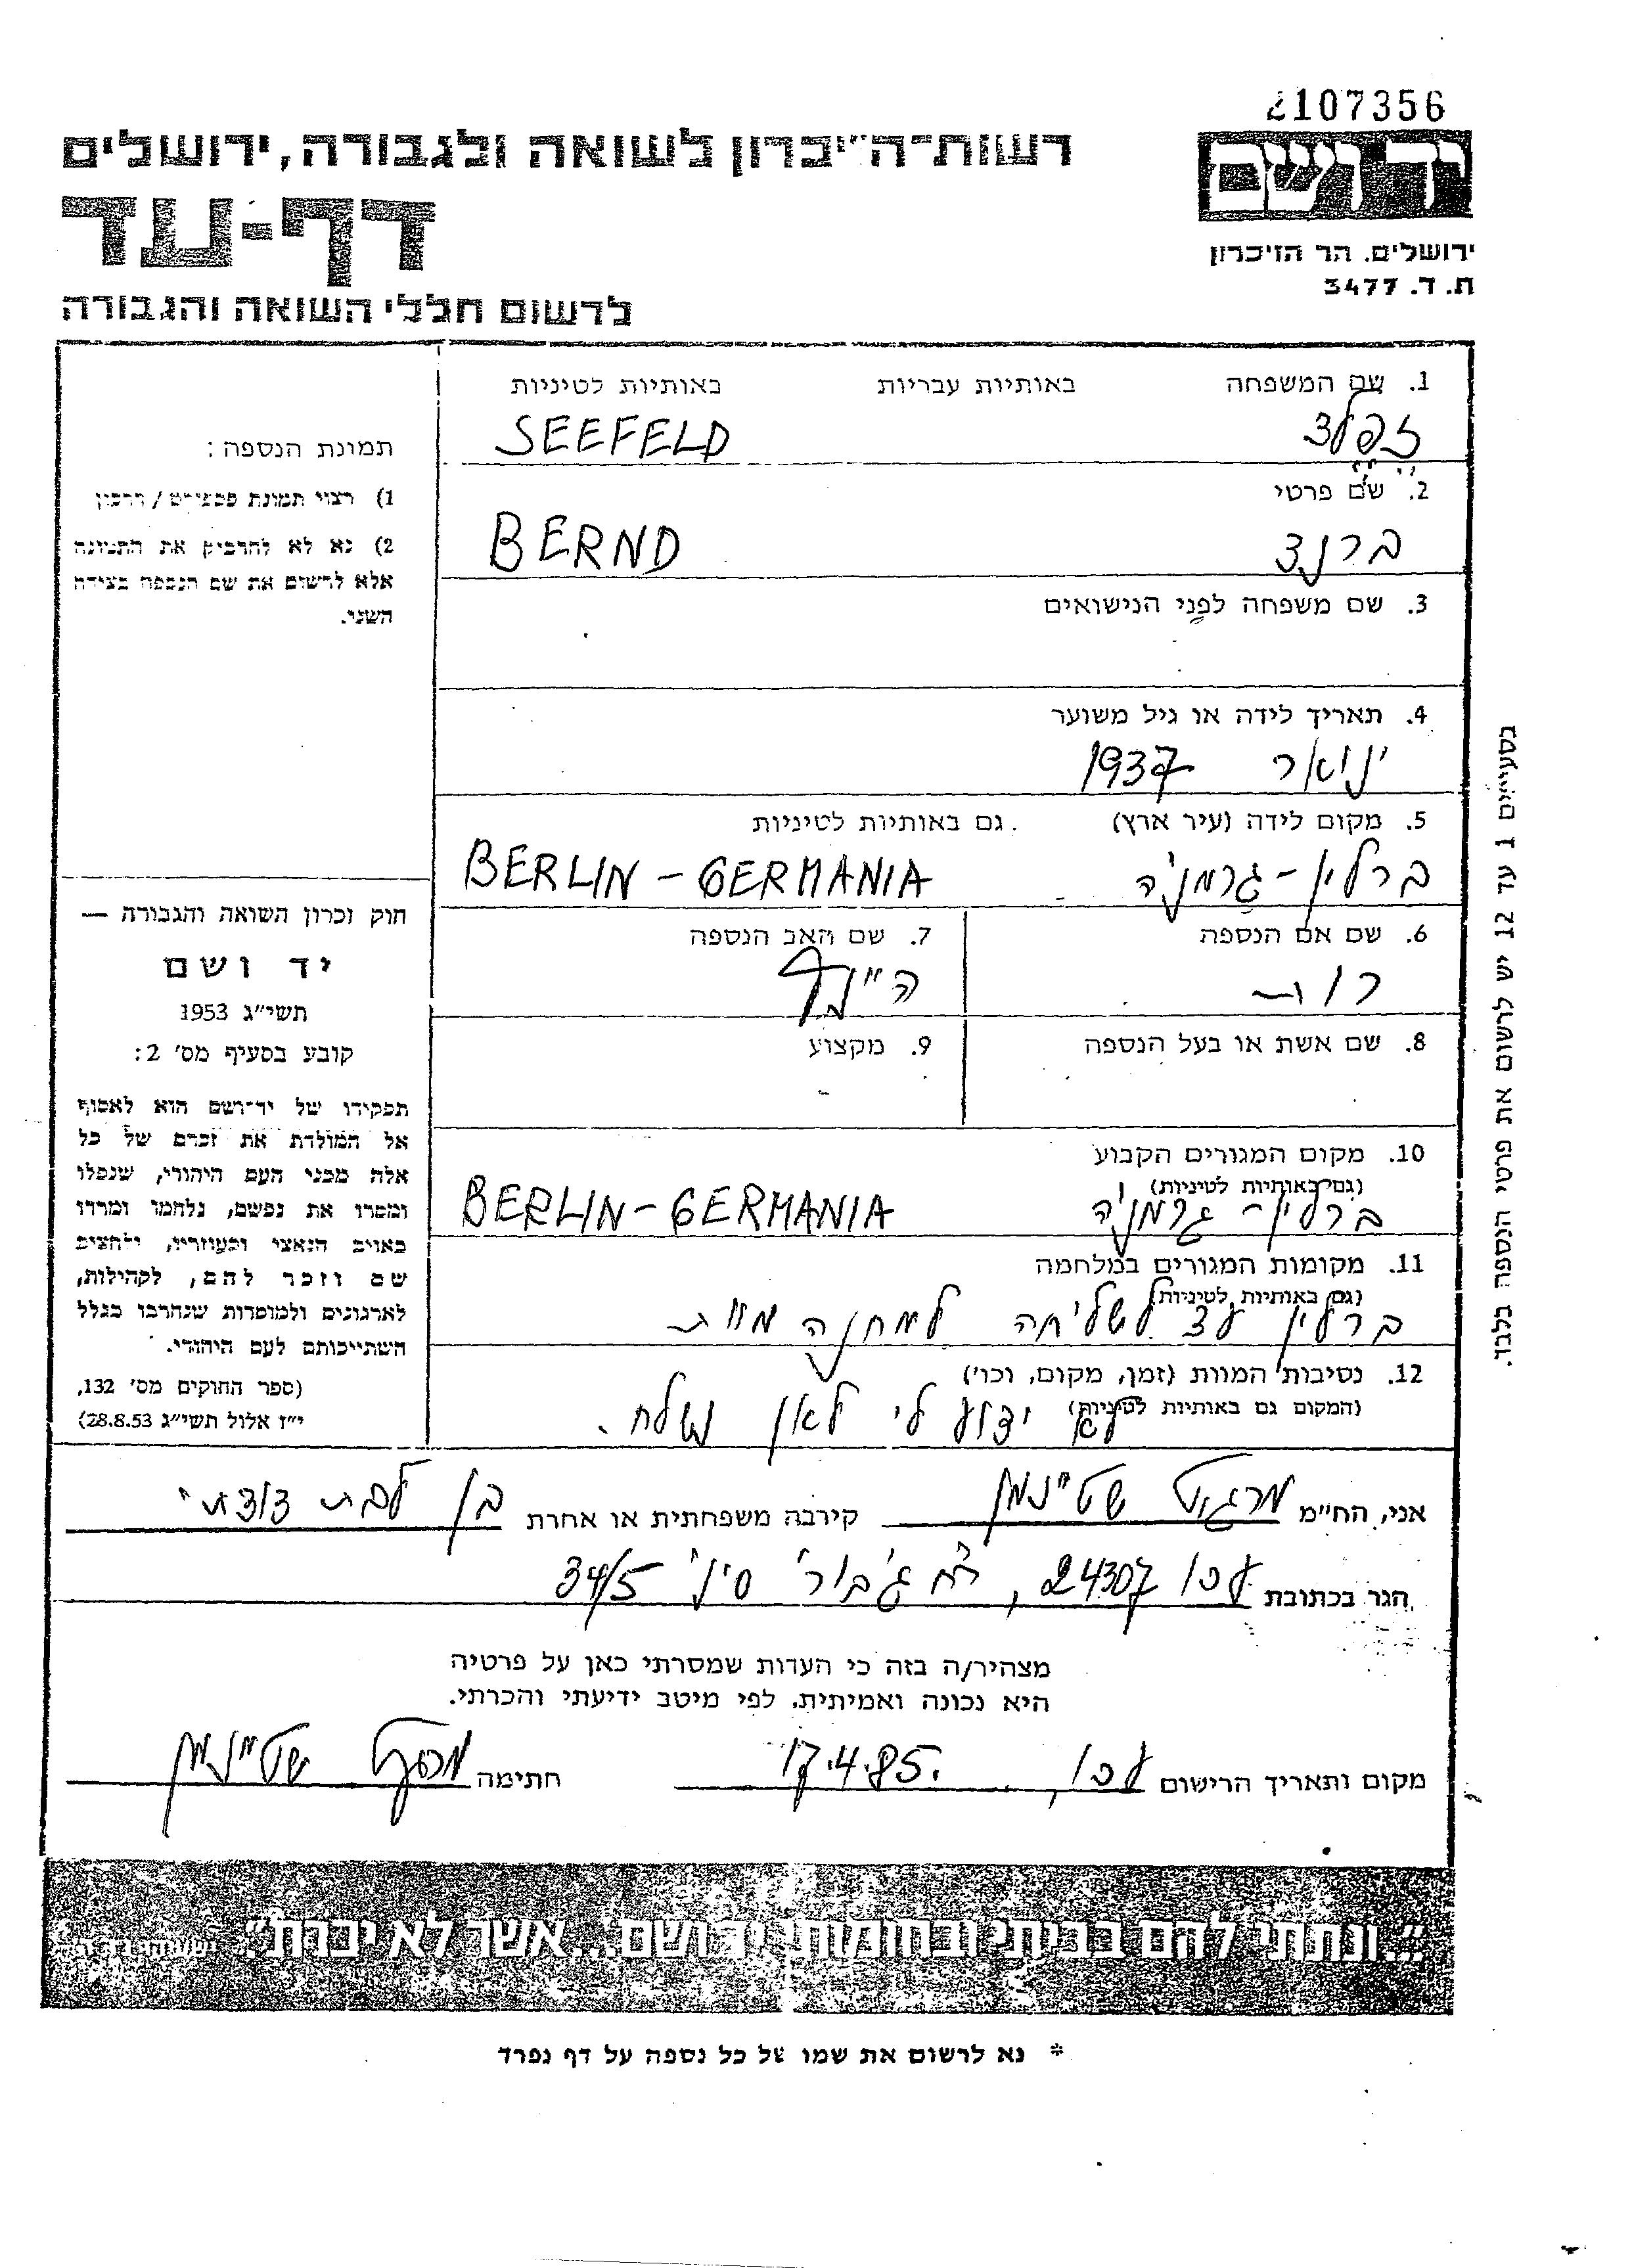 2107356
רשות־הזיכרון לשואה ולגבורה, ירושלים
יד ושם
דף-עד
ירושלים. הר הזיכרון
ת. ד. 3477
לרשום חללי השואה והגבורה
1. שם המשפחה באותיות עבריות באותיות לטיניות
זפלד SEEFELD
2. שם פרטי
ברנד BERND
3. שם משפחה לפני הנישואים
4. תאריך לידה או גיל משוער
ינואר 1937
5. מקום לידה (עיר ארץ) גם באותיות לטיניות
ברלין - גרמניה BERLIN - GERMANIA
6. שם אם הנספה 7. שם האב הנספה
רות היינץ
8. שם אשת או בעל הנספה 9. מקצוע
10. מקום המגורים הקבוע
(גם באותיות לטיניות)
ברלין - גרמניה BERLIN - GERMANIA
11. מקומות המגורים במלחמה
(גם באותיות לטיניות)
ברלין עד לשליחה למחנה מוות
12. נסיבות המוות (זמן, מקום, וכו')
(המקום גם באותיות לטיניות)
לא ידוע לי לאן נשלח.
תמונת הנספה:
1) רצוי תמונת פספורט / דרכון
2) נא לא להדביק את התמונה
אלא לרשום את שם הנספה בצידה
השני.
חוק זכרון השואה והגבורה —
יד ושם
תשי"ג 1953
קובע בסעיף מס' 2:
תפקידו של יד־ושם הוא לאסוף
אל המולדת את זכרם של כל
אלה מבני העם היהודי, שנפלו
ומסרו את נפשם, נלחמו ומרדו
באויב הנאצי ובעוזריו, ולהציב
שם וזכר להם, לקהילות,
לארגונים ולמוסדות שנחרבו בגלל
השתייכותם לעם היהודי.
(ספר החוקים מס' 132,
י"ז אלול תשי"ג 28.8.53)
בסעיפים 1 עד 12 יש לרשום את פרטי הנספה בלבד.
אני, הח"מ מרגוט שטיינמן קירבה משפחתית או אחרת בן לבת דודתי
הגר בכתובת עכו 24307, רח גיבורי סיני 34/5
מצהיר/ה בזה כי העדות שמסרתי כאן על פרטיה
היא נכונה ואמיתית, לפי מיטב ידיעתי והכרתי.
מקום ותאריך הרישום עכו, 17.4.85. חתימה מרגוט שטיינמן
"...ונתתי להם בביתי ובחומותי יד ושם...אשר לא יכרת".
* נא לרשום את שמו של כל נספה על דף נפרד